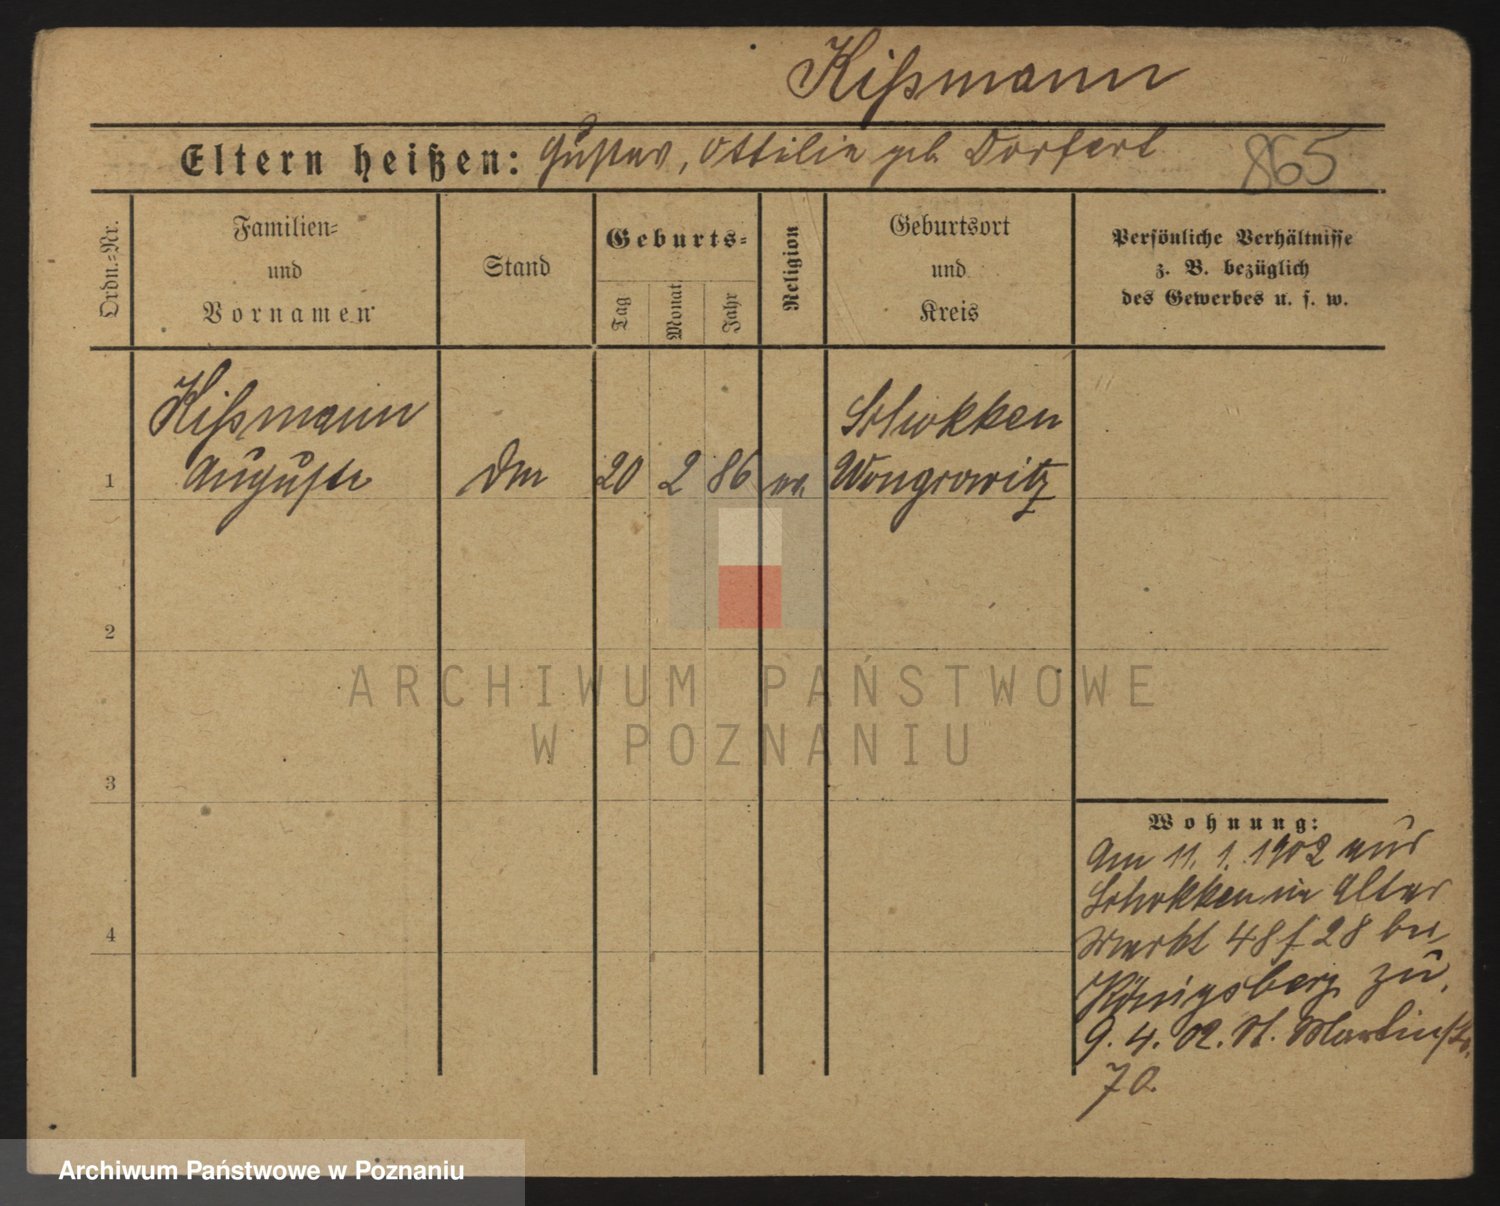 Kißmann
Eltern heißen: Gustav, Ottilie geb. Dorfert
865
Ordn.-Nr.
Familien-
und
Vornamen
Stand
Geburts-
Tag
Monat
Jahr
Religion
Geburtsort
und
Kreis
Persönliche Verhältnisse
z. B. bezüglich
des Gewerbes u. s. w.
Kißmann
Auguste
1
20 2 86 ev.
Schokken
Wongrowitz
2
3
4
Wohnung:
Am 11. 1. 1902 aus
Schokken in Alter
Markt 48 f 28 bei
Königsberg zu.
9. 4. 02. St. Martinstr.
70.
ARCHIWUM PAŃSTWOWE
W POZNANIU
Archiwum Państwowe w Poznaniu